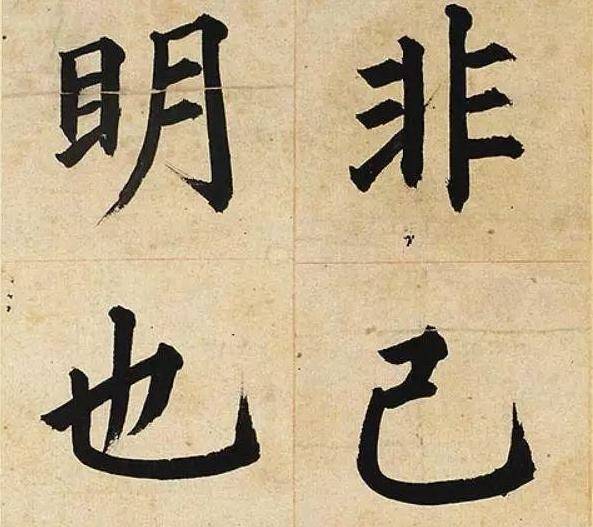 非己
明也